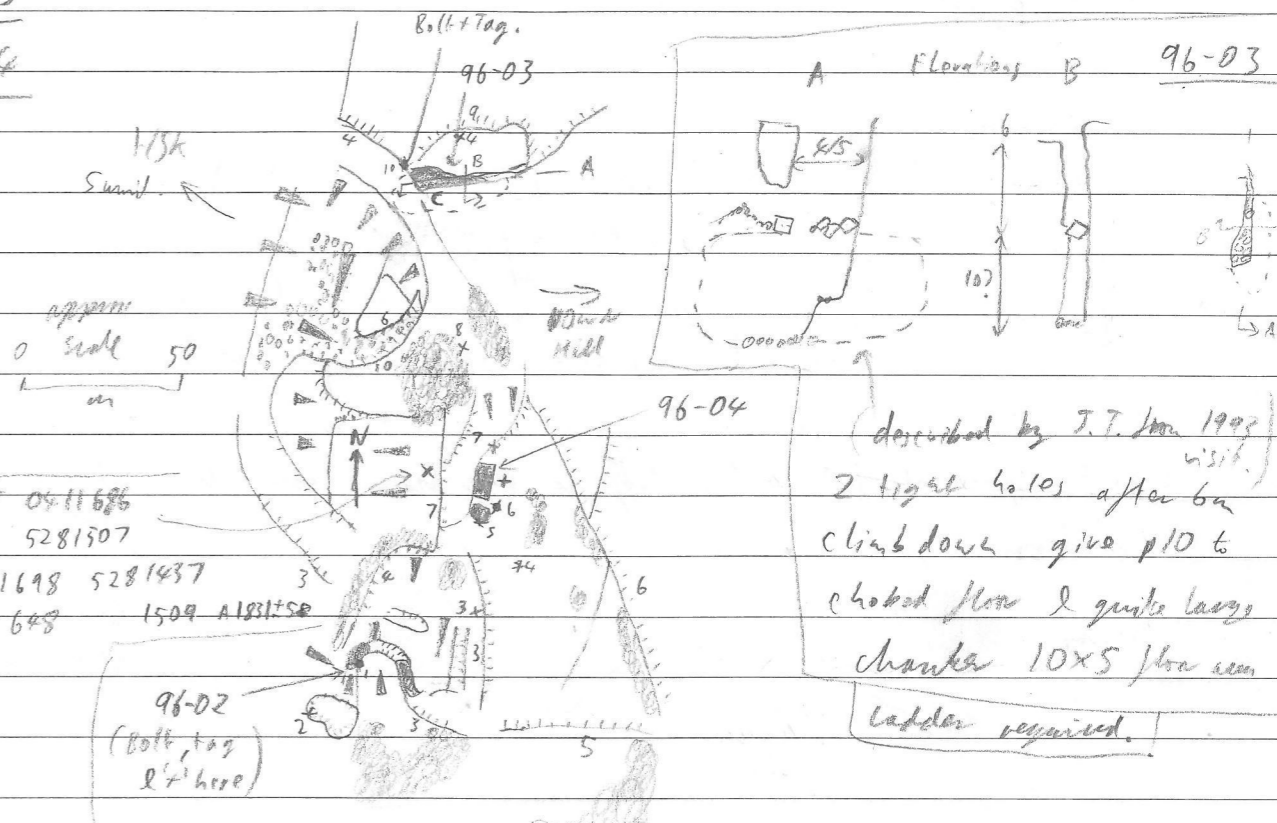 Bolt + Tag.
96-03
A
Elevations
B
96-03
4
9
4
10
B
A
C
4/5
6
10?
A
0
50
m
6
10
8
96-04
N
7
7
6
5
0411686
5281507
1698 5281437
648 1509 A1831±50
3
4
4
3
3
6
96-02
(Bolt, tag
here)
2
1
3
5
described by J.T. from 1993
visit.
2 tight holes after 6m
climb down give p10 to
choked floor & quite large
chamber 10x5 floor area
ladder required.